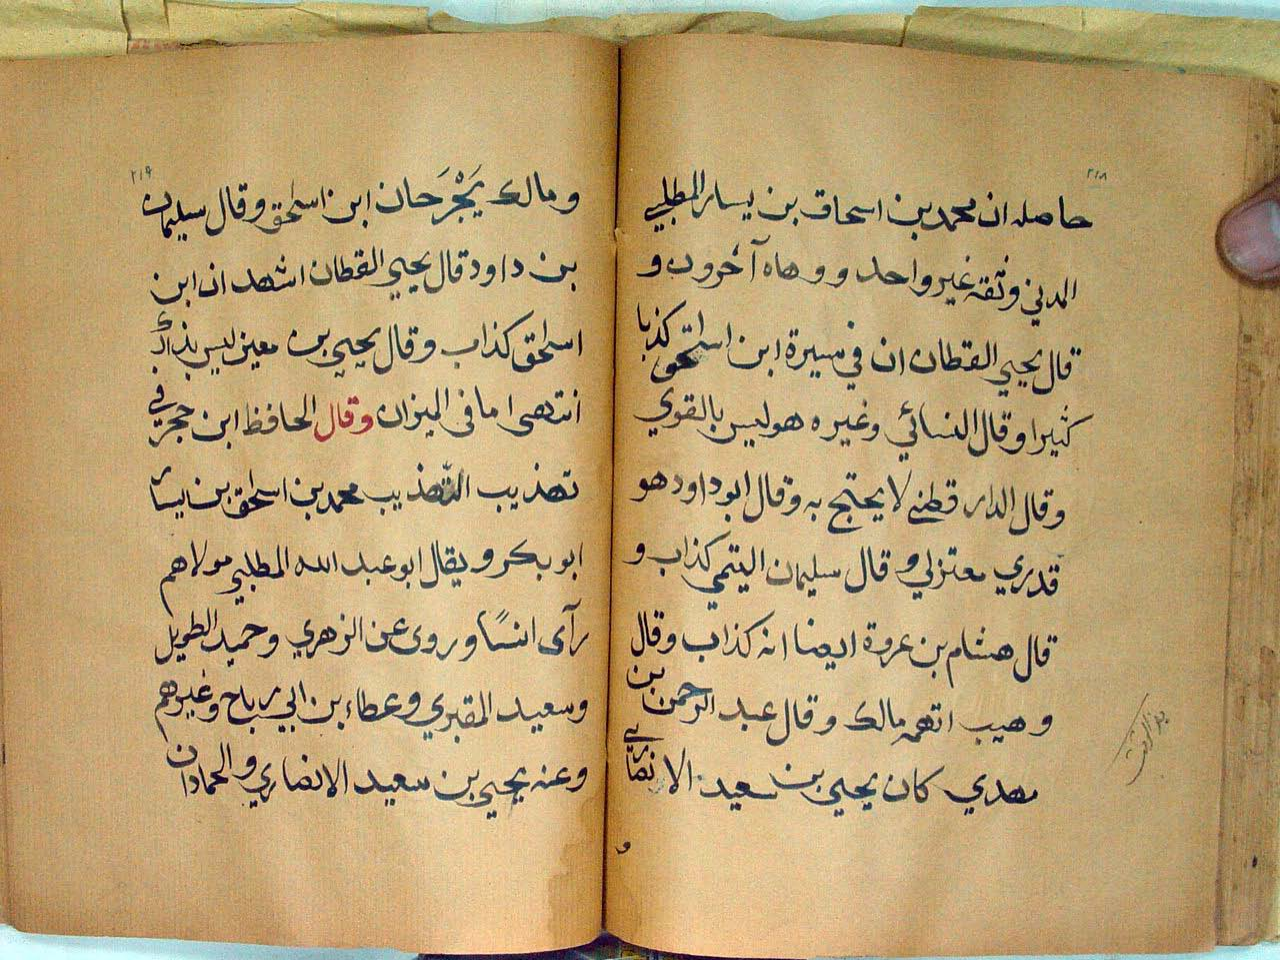 ٢١٨
حاصله ان محمد بن اسحاق بن يسار المطلبي
المدني وثقه غير واحد ووهاه آخرون و
قال يحيي القطان ان في سيرة ابن اسحق كذبا
كثيرا وقال النسائي وغيره هو ليس بالقوي
وقال الدار قطني لا يحتج به وقال ابو داود هو
قدري معتزلي وقال سليمان التيمي كذاب و
قال هشام بن عروة ايضا انه كذاب وقال
وهيب اتهمه مالك وقال عبد الرحمن بن
مهدي كان يحيي بن سعيد الانصاري
و
٢١٩
ومالك يَجْرَحان ابن اسحق وقال سليمان
بن داود قال يحيي القطان اشهد ان ابن
اسحق كذاب وقال يحيي بن معين ليس بذاك
انتهى اما في الميزان وقال الحافظ ابن حجر في
تهذيب التّهذيب محمد بن اسحق بن يسار
ابو بكر ويقال ابو عبد الله المطلبي مولاهم
رآى انسًا وروى عن الزهري وحميد الطويل
وسعيد المقبري وعطاء بن ابي رباح وغيرهم
وعنه يحيي بن سعيد الانصاري والحمادان